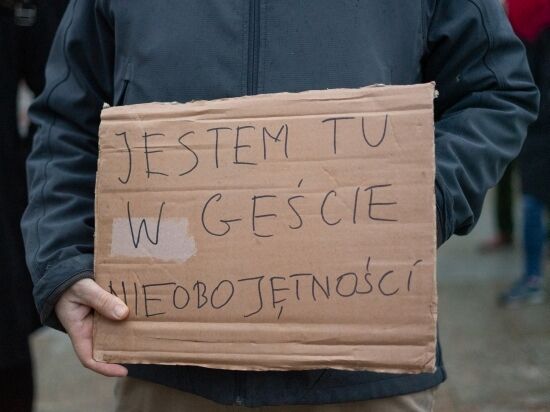 JESTEM TU
W GEŚCIE
NIEOBOJĘTNOŚCI